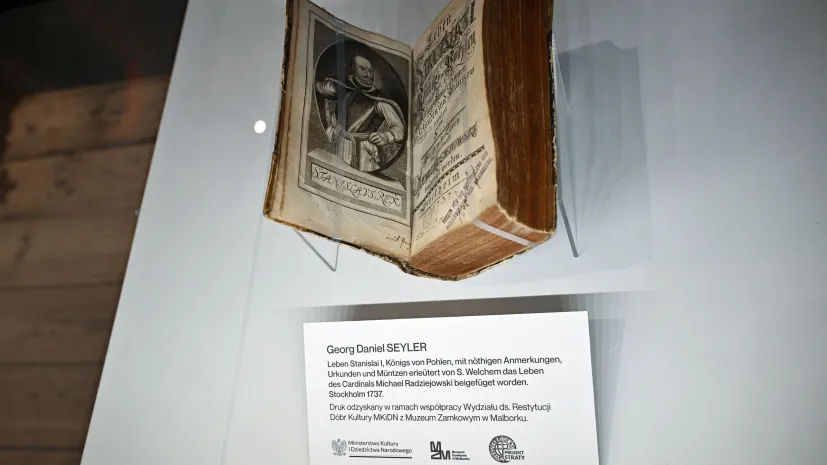 STANISLAUS REX
Leben
Georg Daniel SEYLER
Leben Stanislai I, Königs von Pohlen, mit nöthigen Anmerkungen,
Urkunden und Müntzen erleütert von S. Welchem das Leben
des Cardinals Michael Radziejowski beigefüget worden.
Stockholm 1737.
Druk odzyskany w ramach współpracy Wydziału ds. Restytucji
Dóbr Kultury MKiDN z Muzeum Zamkowym w Malborku.
Ministerstwo Kultury
i Dziedzictwa Narodowego
Muzeum
Zamkowe
w Malborku
PROJEKT
STRATY